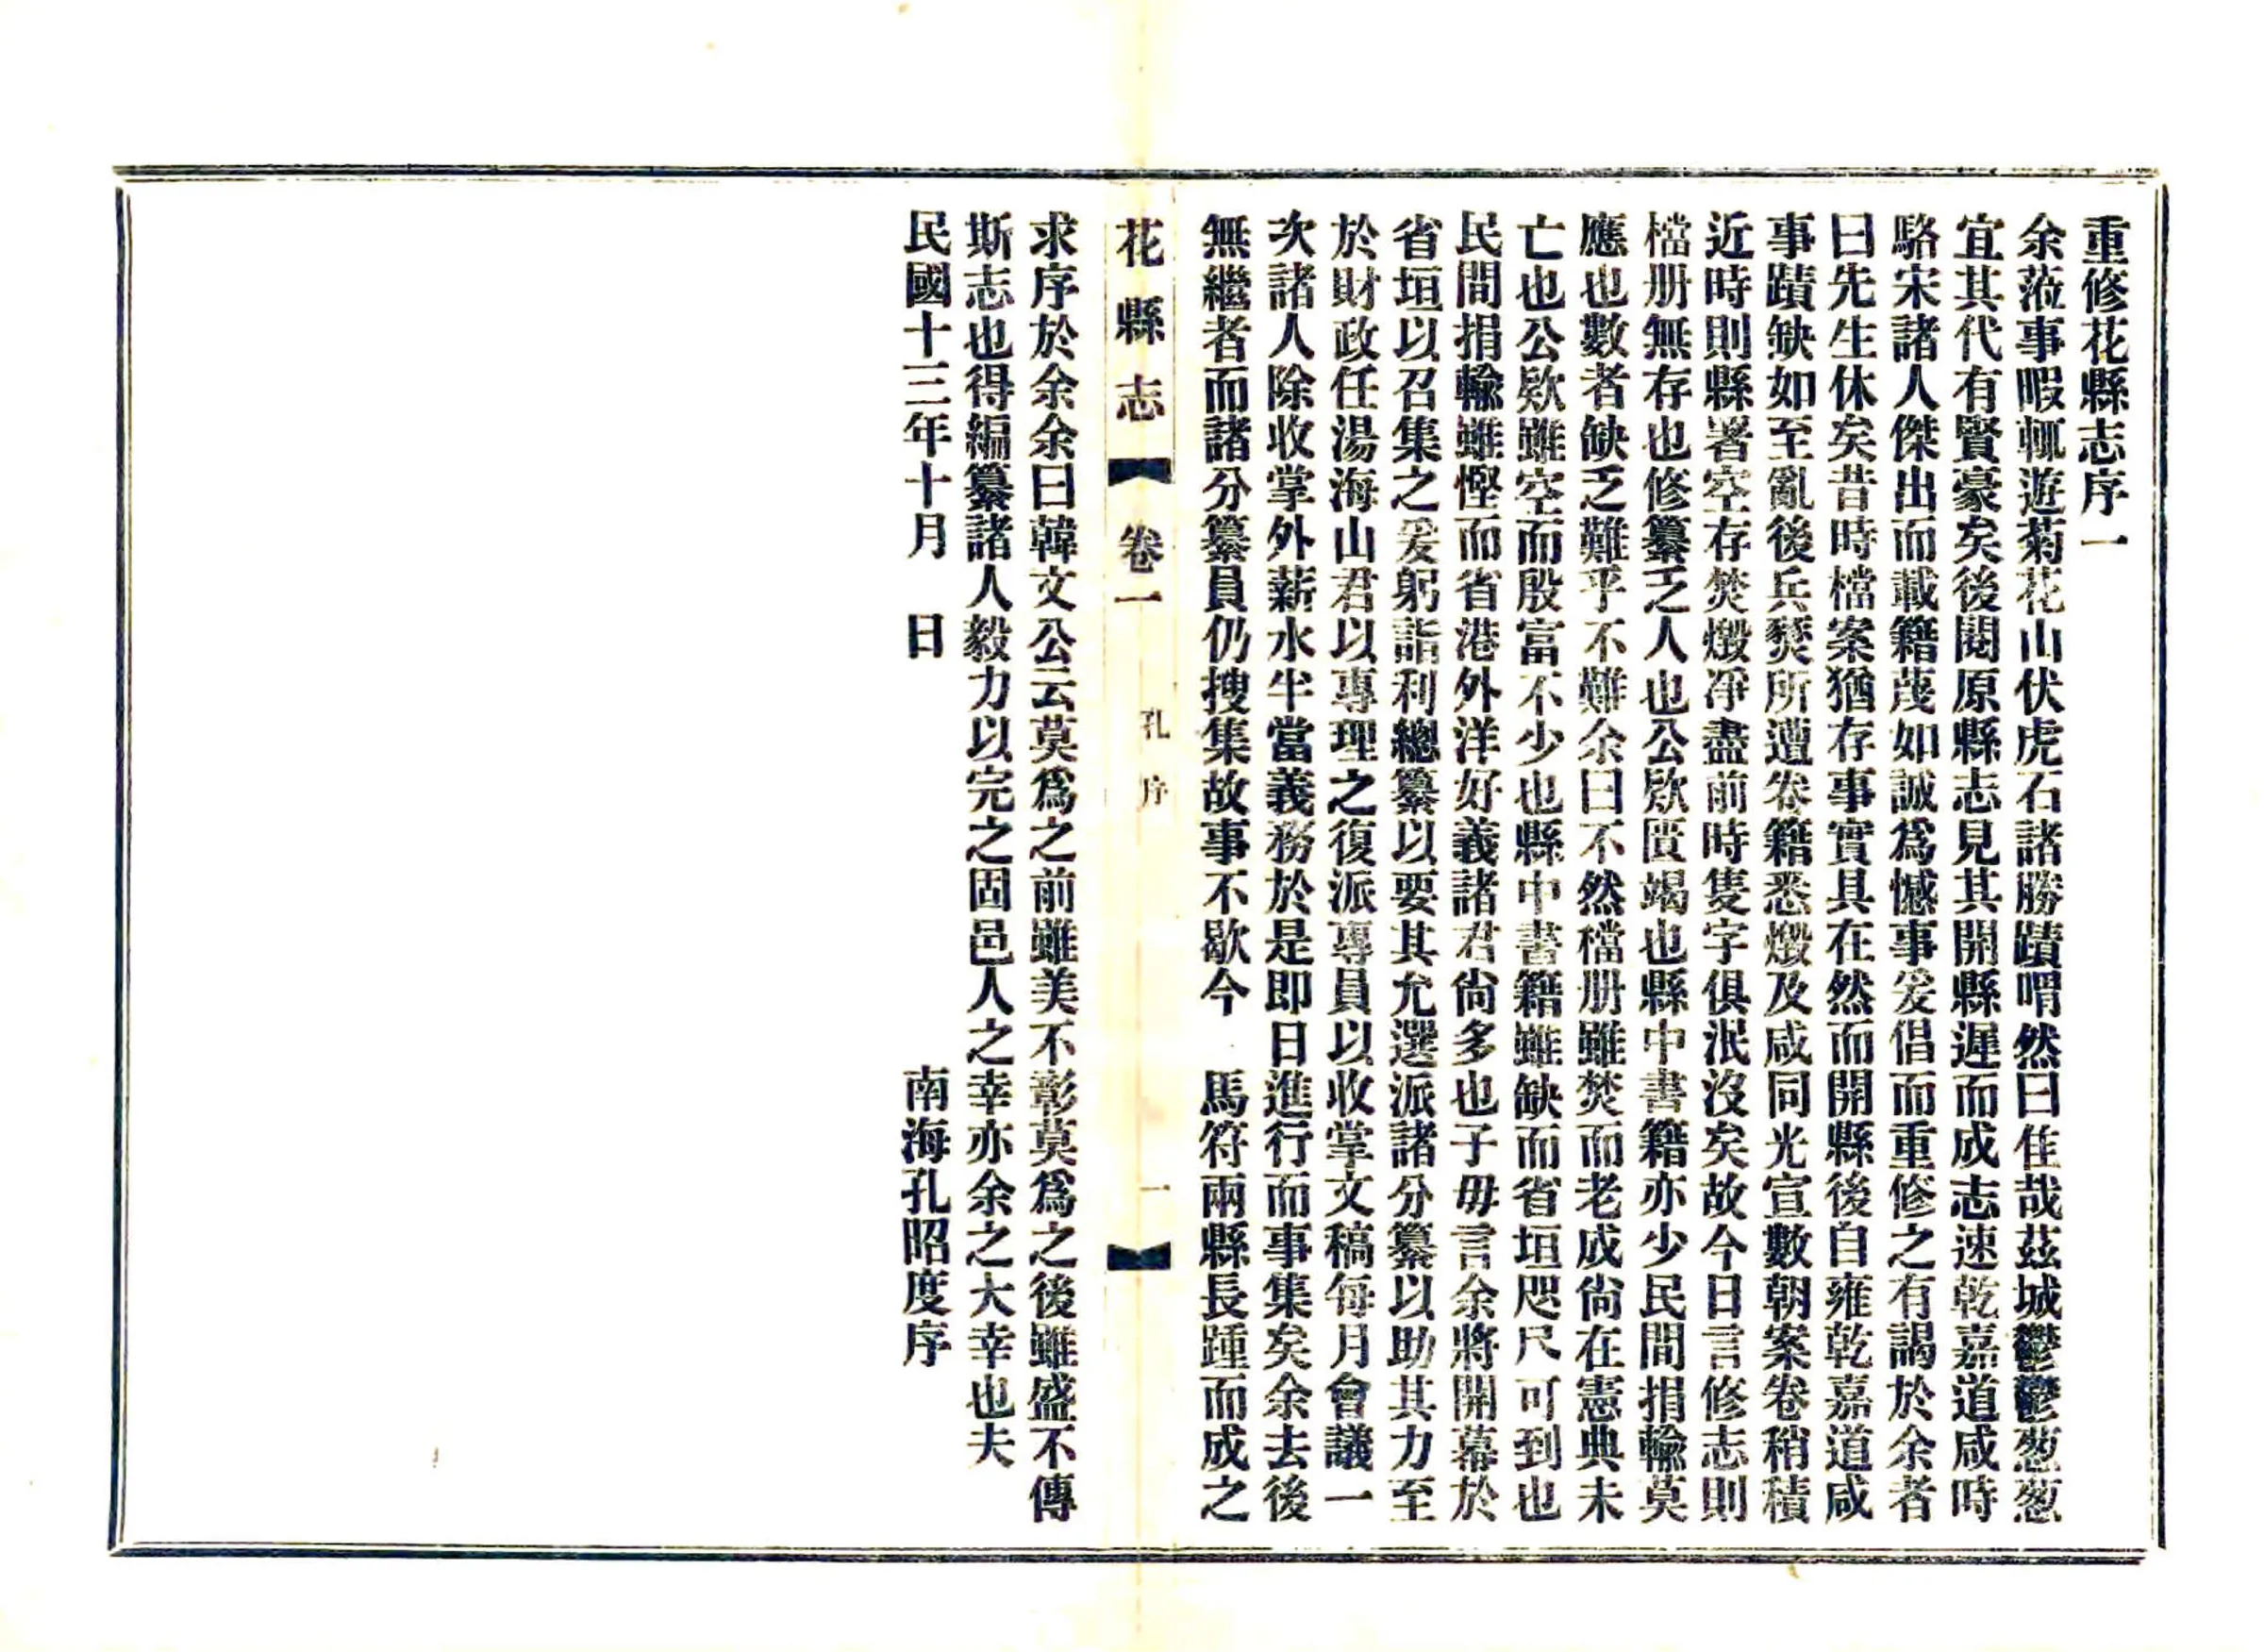 重修花縣志序一
余蒞事暇輒遊菊花山伏虎石諸勝蹟喟然曰佳哉茲城鬱鬱葱葱
宜其代有賢豪矣後閱原縣志見其開縣遲而成志速乾嘉道咸時
駱宋諸人傑出而載籍蔑如誠為憾事爰倡而重修之有謁於余者
曰先生休矣昔時檔案猶存事實具在然而開縣後自雍乾嘉道咸
事蹟缺如至亂後兵燹所遭卷籍悉燬及咸同光宣數朝案卷稍積
近時則縣署空存焚燬淨盡前時隻字俱泯沒矣故今日言修志則
檔册無存也修纂乏人也公欵匱竭也縣中書籍亦少民間捐輸莫
應也數者缺乏難乎不難余曰不然檔册雖焚而老成尚在憲典未
亡也公欵雖空而殷富不少也縣中書籍雖缺而省垣咫尺可到也
民間捐輸雖慳而省港外洋好義諸君尚多也子毋言余將開幕於
省垣以召集之爰躬詣利總纂以要其允選派諸分纂以助其力至
於財政任湯海山君以專理之復派專員以收掌文稿每月會議一
次諸人除收掌外薪水半當義務於是即日進行而事集矣余去後
無繼者而諸分纂員仍搜集故事不歇今　馬符兩縣長踵而成之
花縣志　卷一　孔序　一
求序於余余曰韓文公云莫爲之前雖美不彰莫爲之後雖盛不傳
斯志也得編纂諸人毅力以完之固邑人之幸亦余之大幸也夫
民國十三年十月　日　南海孔昭度序